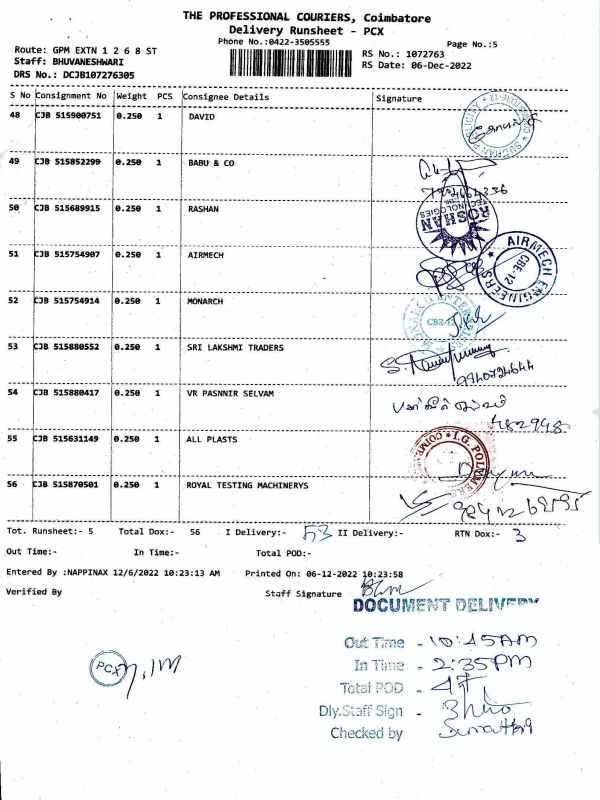 THE PROFESSIONAL COURIERS, Coimbatore
Delivery Runsheet - PCX
Phone No.:0422-3505555
Page No.:5
Route: GPM EXTN 1 2 6 8 ST
Staff: BHUVANESHWARI
DRS No.: DCJB107276305
RS No.: 1072763
RS Date: 06-Dec-2022
S No Consignment No Weight PCS Consignee Details Signature
48 CJB 515900751 0.250 1 DAVID
49 CJB 515852299 0.250 1 BABU & CO
50 CJB 515689915 0.250 1 RASHAN
ROSHAN TECHNOLOGIES
51 CJB 515754907 0.250 1 AIRMECH
AIRMECH ENGINEERS CBE-12
52 CJB 515754914 0.250 1 MONARCH
53 CJB 515880552 0.250 1 SRI LAKSHMI TRADERS
9940724644
54 CJB 515880417 0.250 1 VR PASNNIR SELVAM
55 CJB 515631149 0.250 1 ALL PLASTS
I.G. POLYMERS
56 CJB 515870501 0.250 1 ROYAL TESTING MACHINERYS
Tot. Runsheet:- 5 Total Dox:- 56 I Delivery:- 53 II Delivery:- RTN Dox:- 3
Out Time:- In Time:- Total POD:-
Entered By :NAPPINAX 12/6/2022 10:23:13 AM Printed On: 06-12-2022 10:23:58
Verified By Staff Signature
DOCUMENT DELIVERY
Out Time - 10:45AM
In Time - 2:35PM
Total POD -
Dly.Staff Sign -
Checked by
PCX